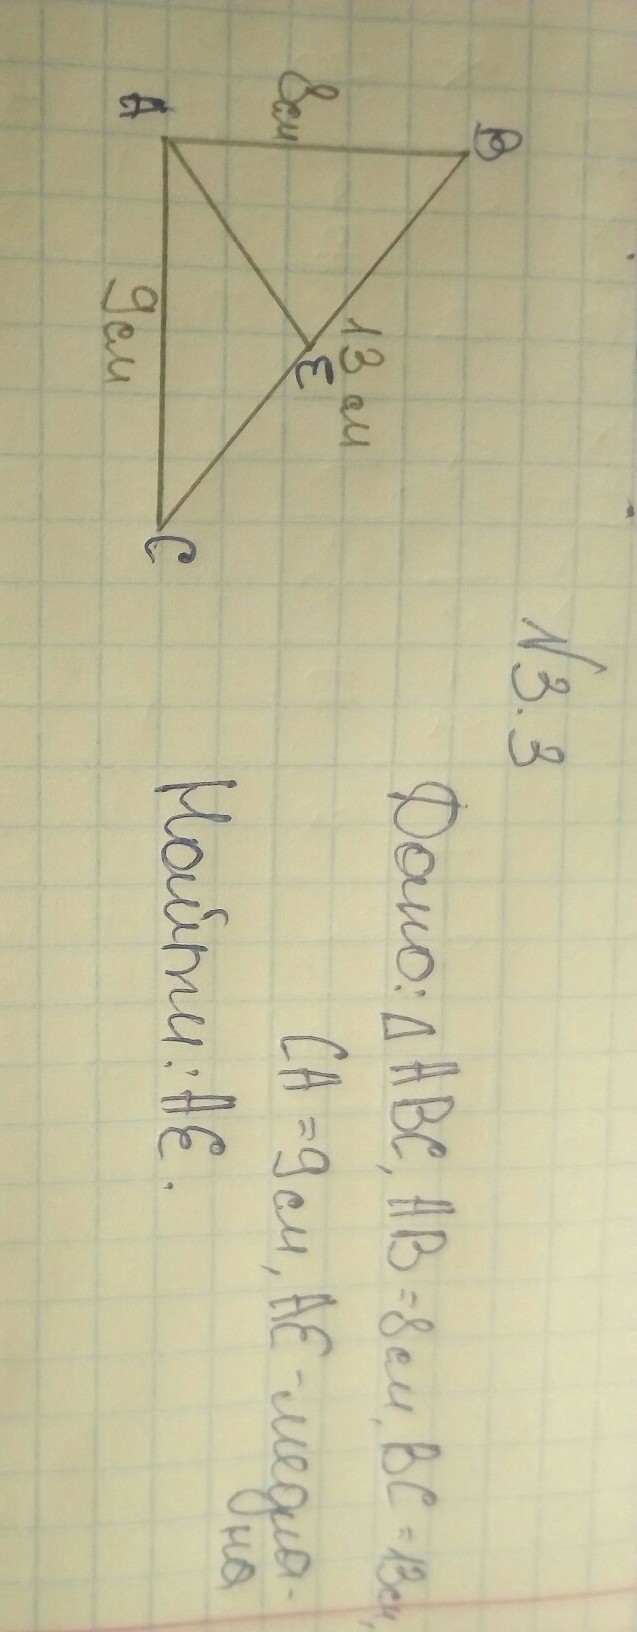 №3.3
B
8см
13 см
E
A
9см
C
Дано: Δ ABC, AB = 8см, BC = 13см,
CA = 9см, AE - медиа-
на
Найти: AE.